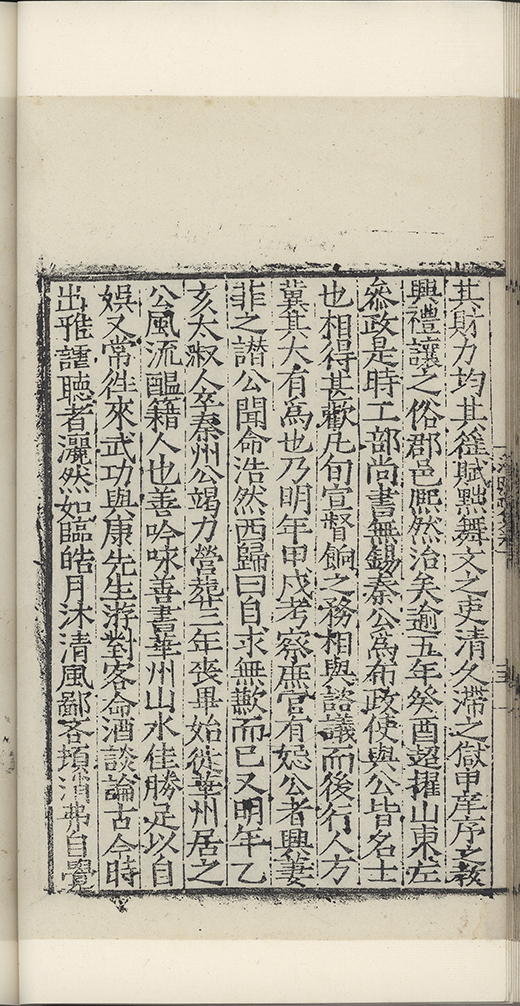 其財力均其徭賦黜舞文之吏清久滯之獄申庠序之敎
興禮讓之俗郡邑熙然治矣逾五年癸酉超擢山東左
叅政是時工部尚書無錫秦公為布政使與公皆名士
也相得甚歡凡旬宣督餉之務相與諮議而後行人方
冀其大有為也乃明年甲戌考察庶官有忌公者興萋
菲之譖公聞命浩然西歸曰自求無歉而已又明年乙
亥太淑人卒秦州公竭力營葬三年喪畢始徙華州居之
公風流醞籍人也善吟咏善書華州山水佳勝足以自
娛又常徃來武功與康先生游對客命酒談論古今時
出雅謔聽者灑然如臨皓月沐清風鄙吝頓消弗自覺